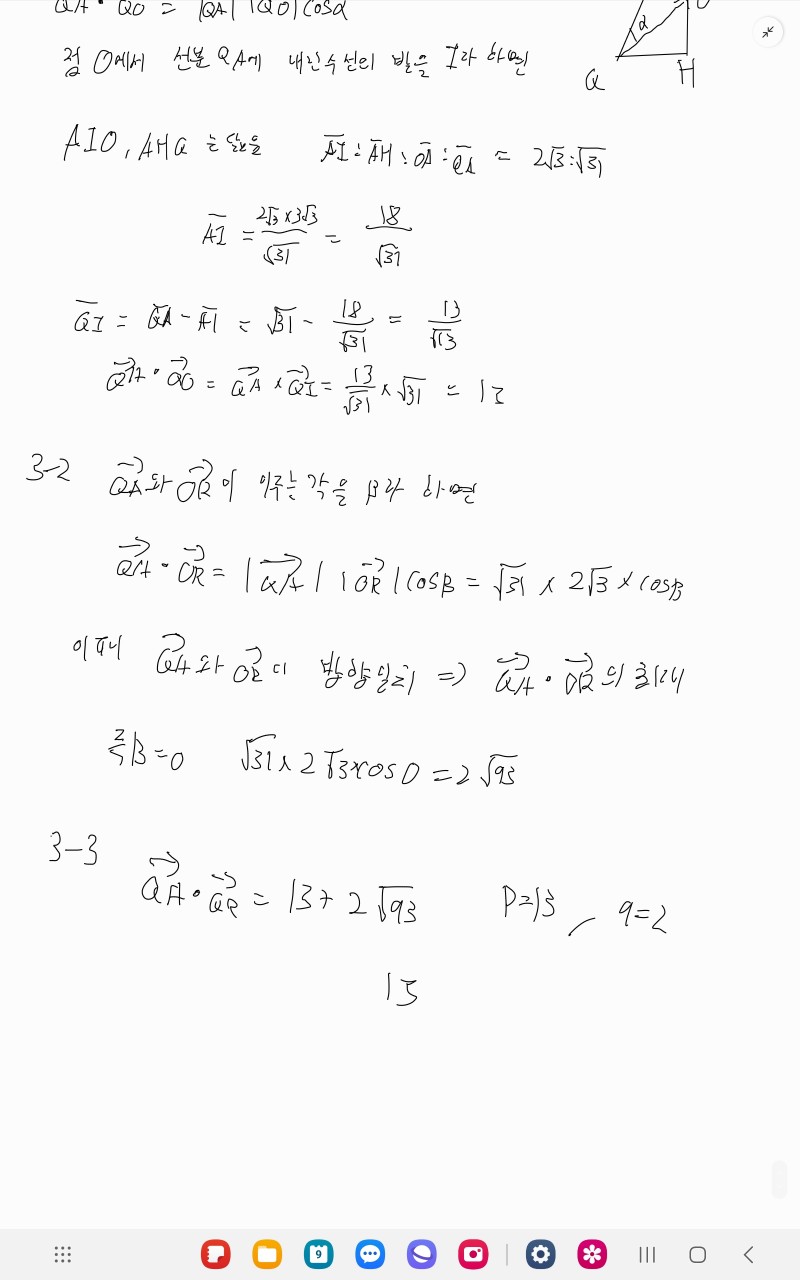 QA · QO = |QA| |QO| cosα
점 O에서 선분 QA에 내린 수선의 발을 I라 하면
α
Q
H
AIO, AHQ는 닮음 AI : AH : OA : QA = 2√3 : √31
AI = 2√3 × 3√3 / √31 = 18/√31
QI = QA - AI = √31 - 18/√31 = 13/√13
QA · QO = QA × QI = 13/√31 × √31 = 13
3-2 QA와 OR이 이루는 각을 β라 하면
QA · OR = |QA| |OR| cosβ = √31 × 2√3 × cosβ
이때 QA와 OR이 방향일치 => QA · OR의 최대
즉 β = 0 √31 × 2√3 × cos0 = 2√93
3-3
QA · QR = 13 + 2√93 P=13, q=2
15
9